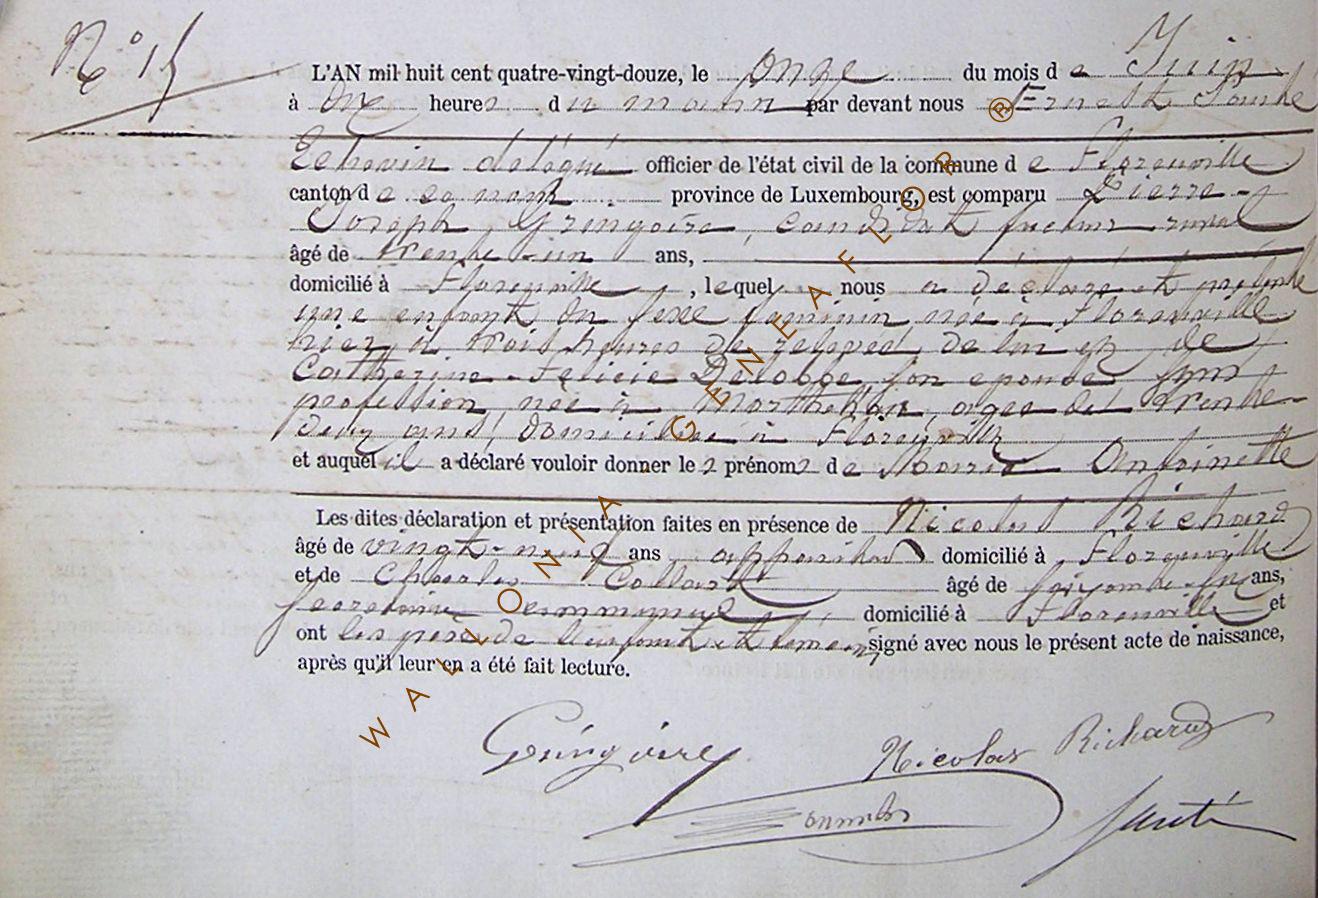 N° 15
L'AN mil huit cent quatre-vingt-douze, le onze du mois de Juin
à dix heures du matin par devant nous Ernest Santé
Echevin délégué officier de l'état civil de la commune de Florenville
canton de province de Luxembourg, est comparu Pierre-
Joseph Gringoire, facteur rural
âgé de trente-un ans,
domicilié à Florenville, lequel nous a déclaré et présenté
une enfant du sexe féminin née à Florenville
hier à trois heures de relevée, de lui et de
Catherine-Félicie son épouse sans
profession, née à Marthelan, âgée de trente-
deux ans, domiciliée à Florenville
et auquel il a déclaré vouloir donner les prénoms de Marie Antoinette
Les dites déclaration et présentation faites en présence de Nicolas Richard
âgé de vingt-neuf ans appariteur domicilié à Florenville
et de Charles Collart âgé de ans,
Secrétaire communal domicilié à Florenville et
ont les père de l'enfant et témoins signé avec nous le présent acte de naissance,
après qu'il leur en a été fait lecture.
Gringoire Nicolas Richard
Santé
WALLONIA GENEAFLOR ®